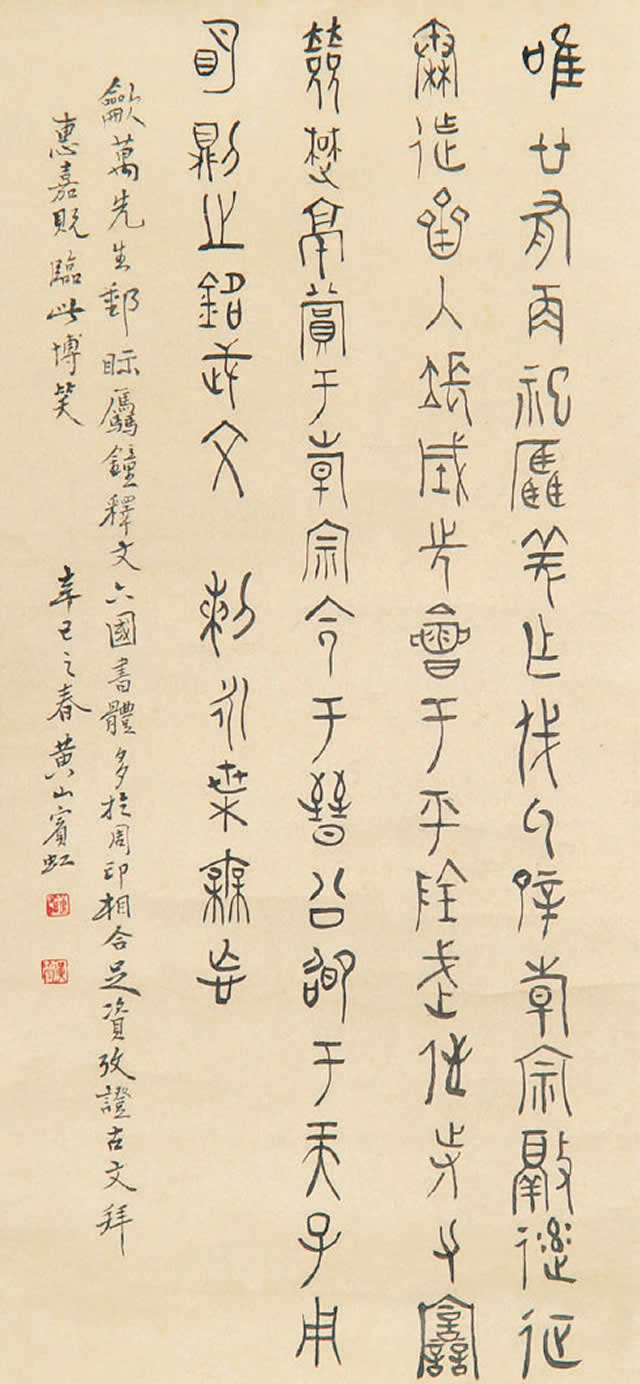 唯廿又再祀驫羌乍戎氒辟倝宗敲逹征
秦迮齊入長城先會于平陰武侄寺力富
敓楚京賞于倝宗令于晉公卲于天子用
明則之銘武文 剌永枼無亡
龡萬先生郵眎驫鐘釋文六國書體多於周印相合足資攷證古文拜
惠嘉貺臨此博笑 辛巳之春黃山賓虹